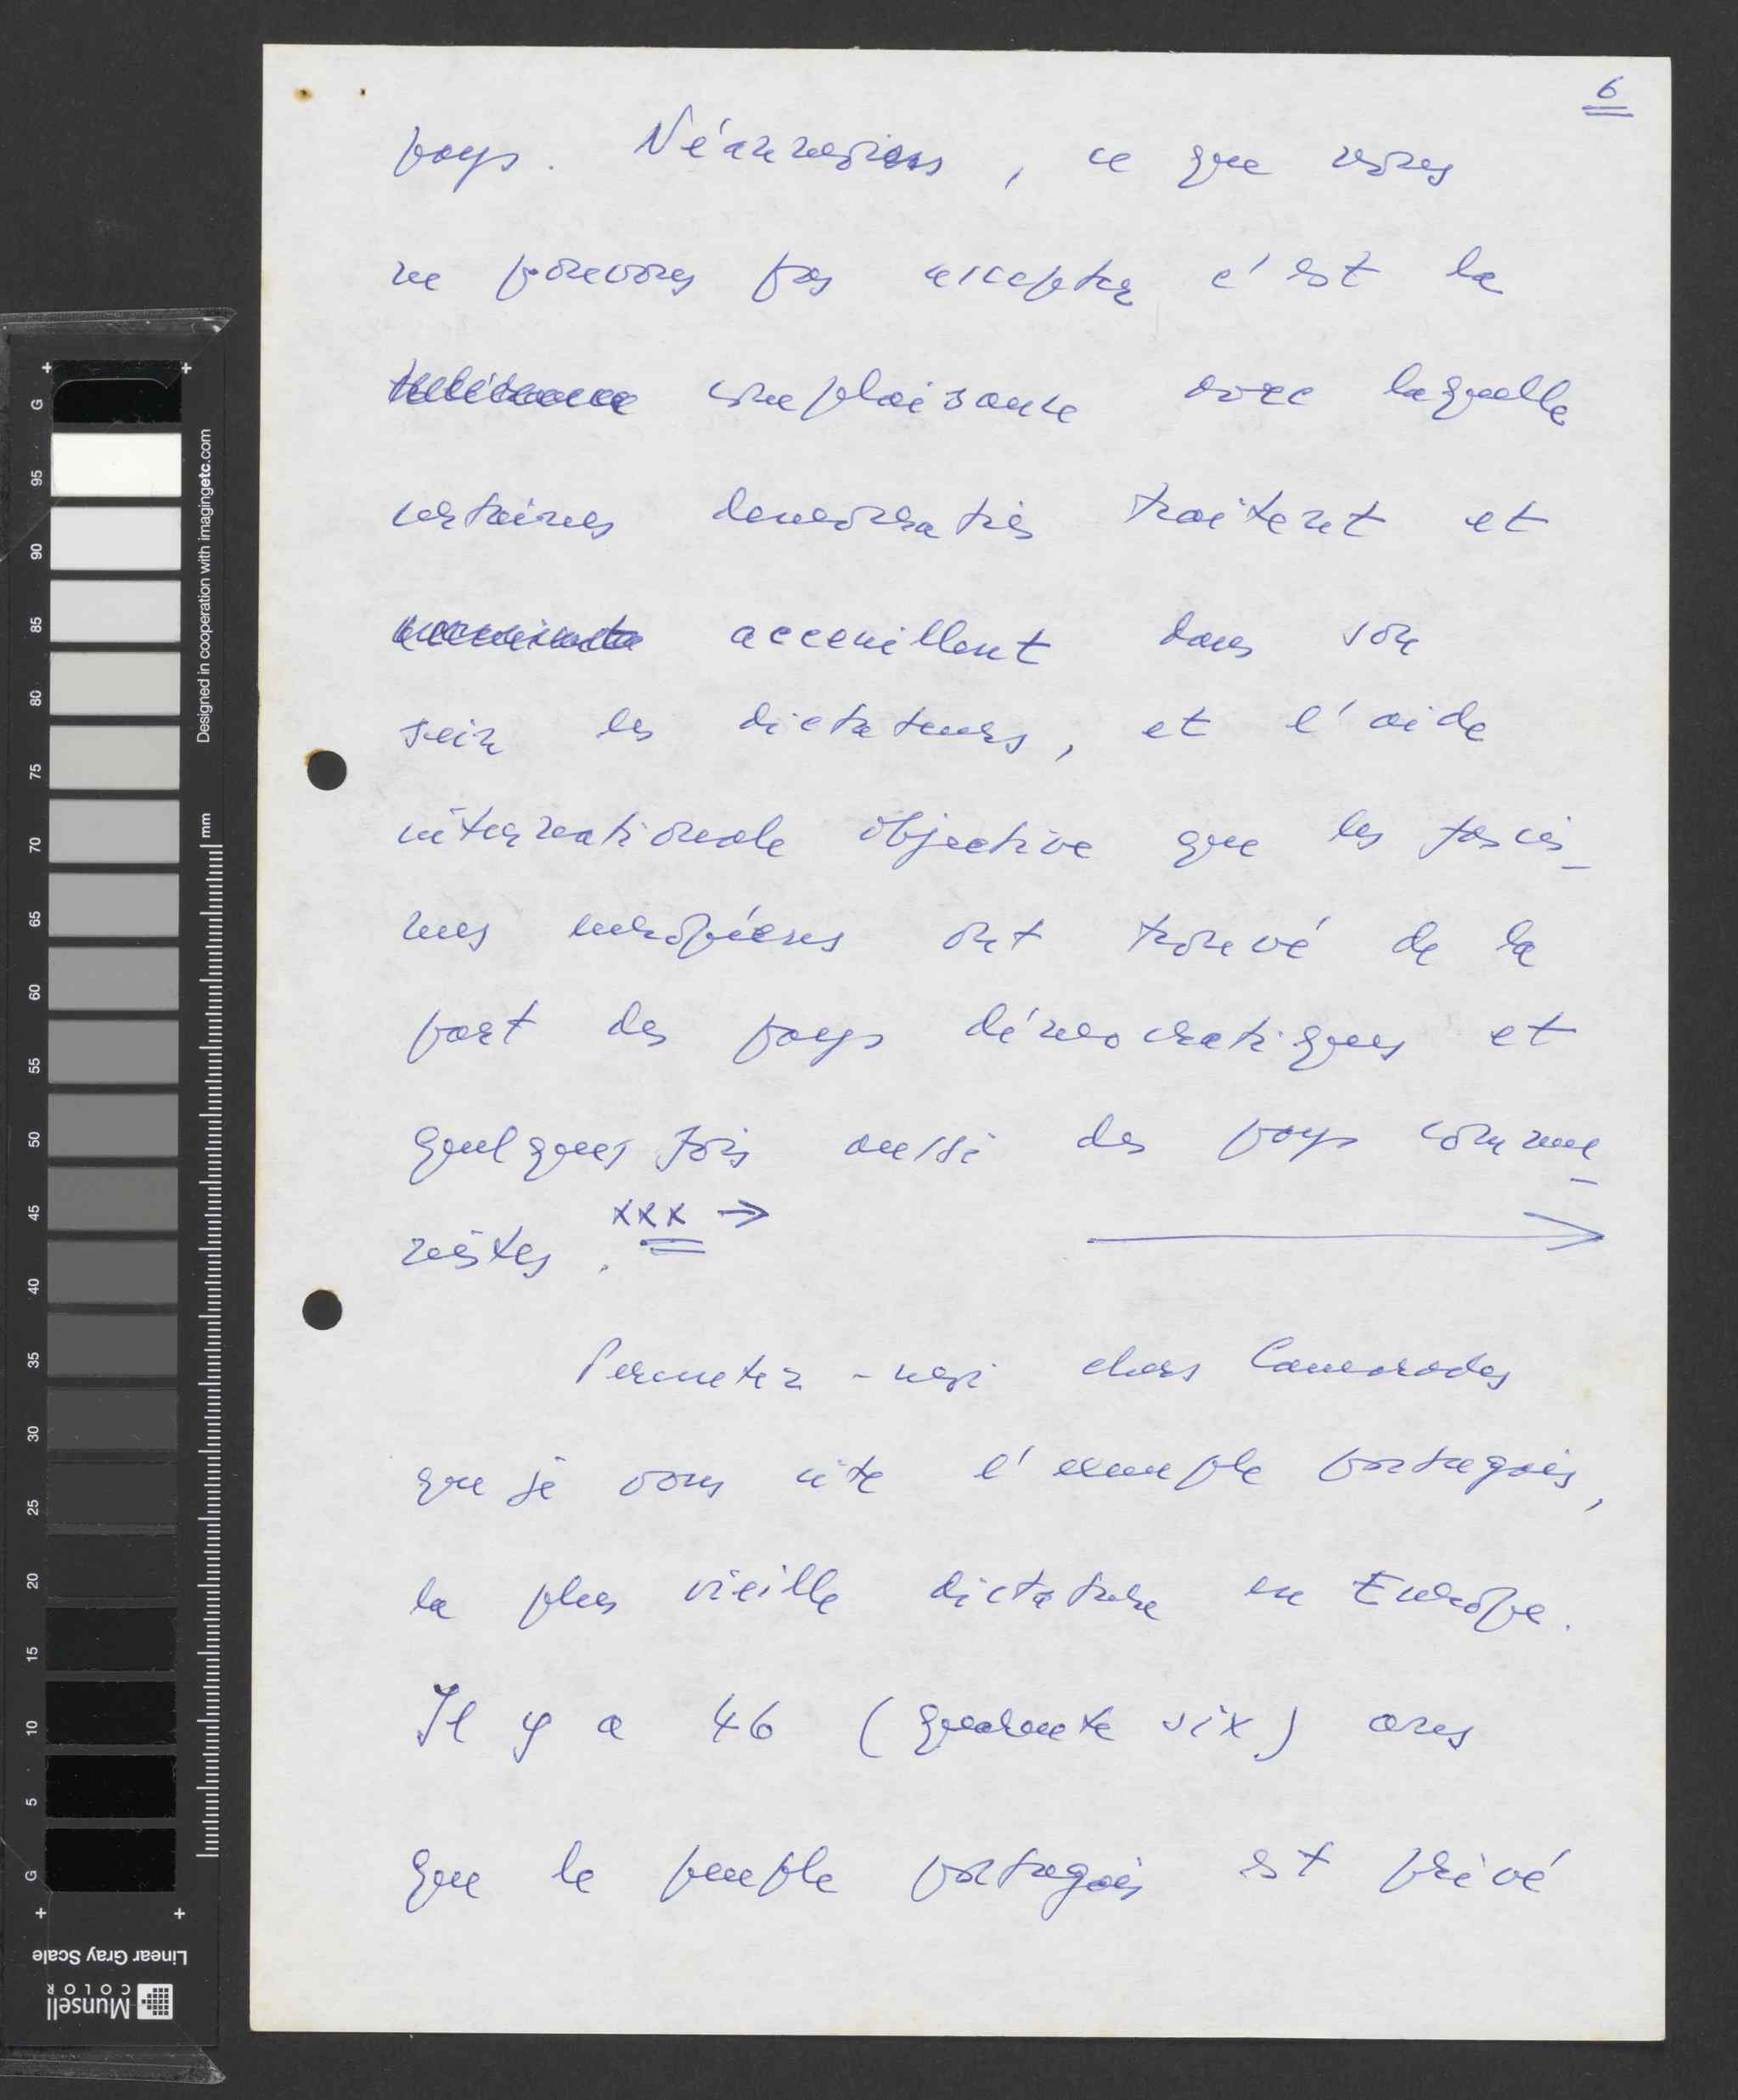 6
pays. Néanmoins, ce que nous
ne pouvons pas accepter c'est la
complaisance avec laquelle
certaines democraties traitent et
acceuillent dans son
sein les dictateurs, et l'aide
internationale objective que les fascis-
mes européens ont trouvé de la
part des pays démocratiques et
quelques fois aussi des pays commu-
nistes. xxx →
Permetez-moi chers Camarades
que je vous cite l'exemple portugais,
la plus vieille dictature en Europe.
Il y a 46 (quarante six) ans
que le peuple portugais est privé
Designed in cooperation with imagingetc.com
mm
G 95 90 85 80 75 70 65 60 55 50 45 40 35 30 25 20 15 10 5 G
Linear Gray Scale
Munsell
COLOR